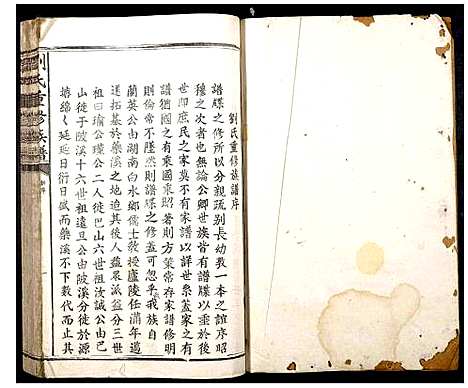 劉氏重修族譜序
譜牒之修所以分親疏別長幼敦一本之誼序昭
穆之次者也無論公卿世族皆有譜牒以垂於後
世即庶民之家莫不有以詳世系蓋家之有
譜猶國之有乘國乘昭著則方策常存家譜修明
則倫常不墜然則譜牒之修蓋可忽乎哉我族自
蘭英公由湖南白水鄉儒士敎授廬陵任滿年邁
遂拓基於藥溪之地迨其後人益眾派益分三世
祖曰瑜公璞公二人徙巴山六世祖汝誠公由巴
山徙于陂溪十六世祖遠旦公由陂溪分徙於源
塘綿綿延延日衍日盛而藥溪不下數代而止其
劉氏重修族譜